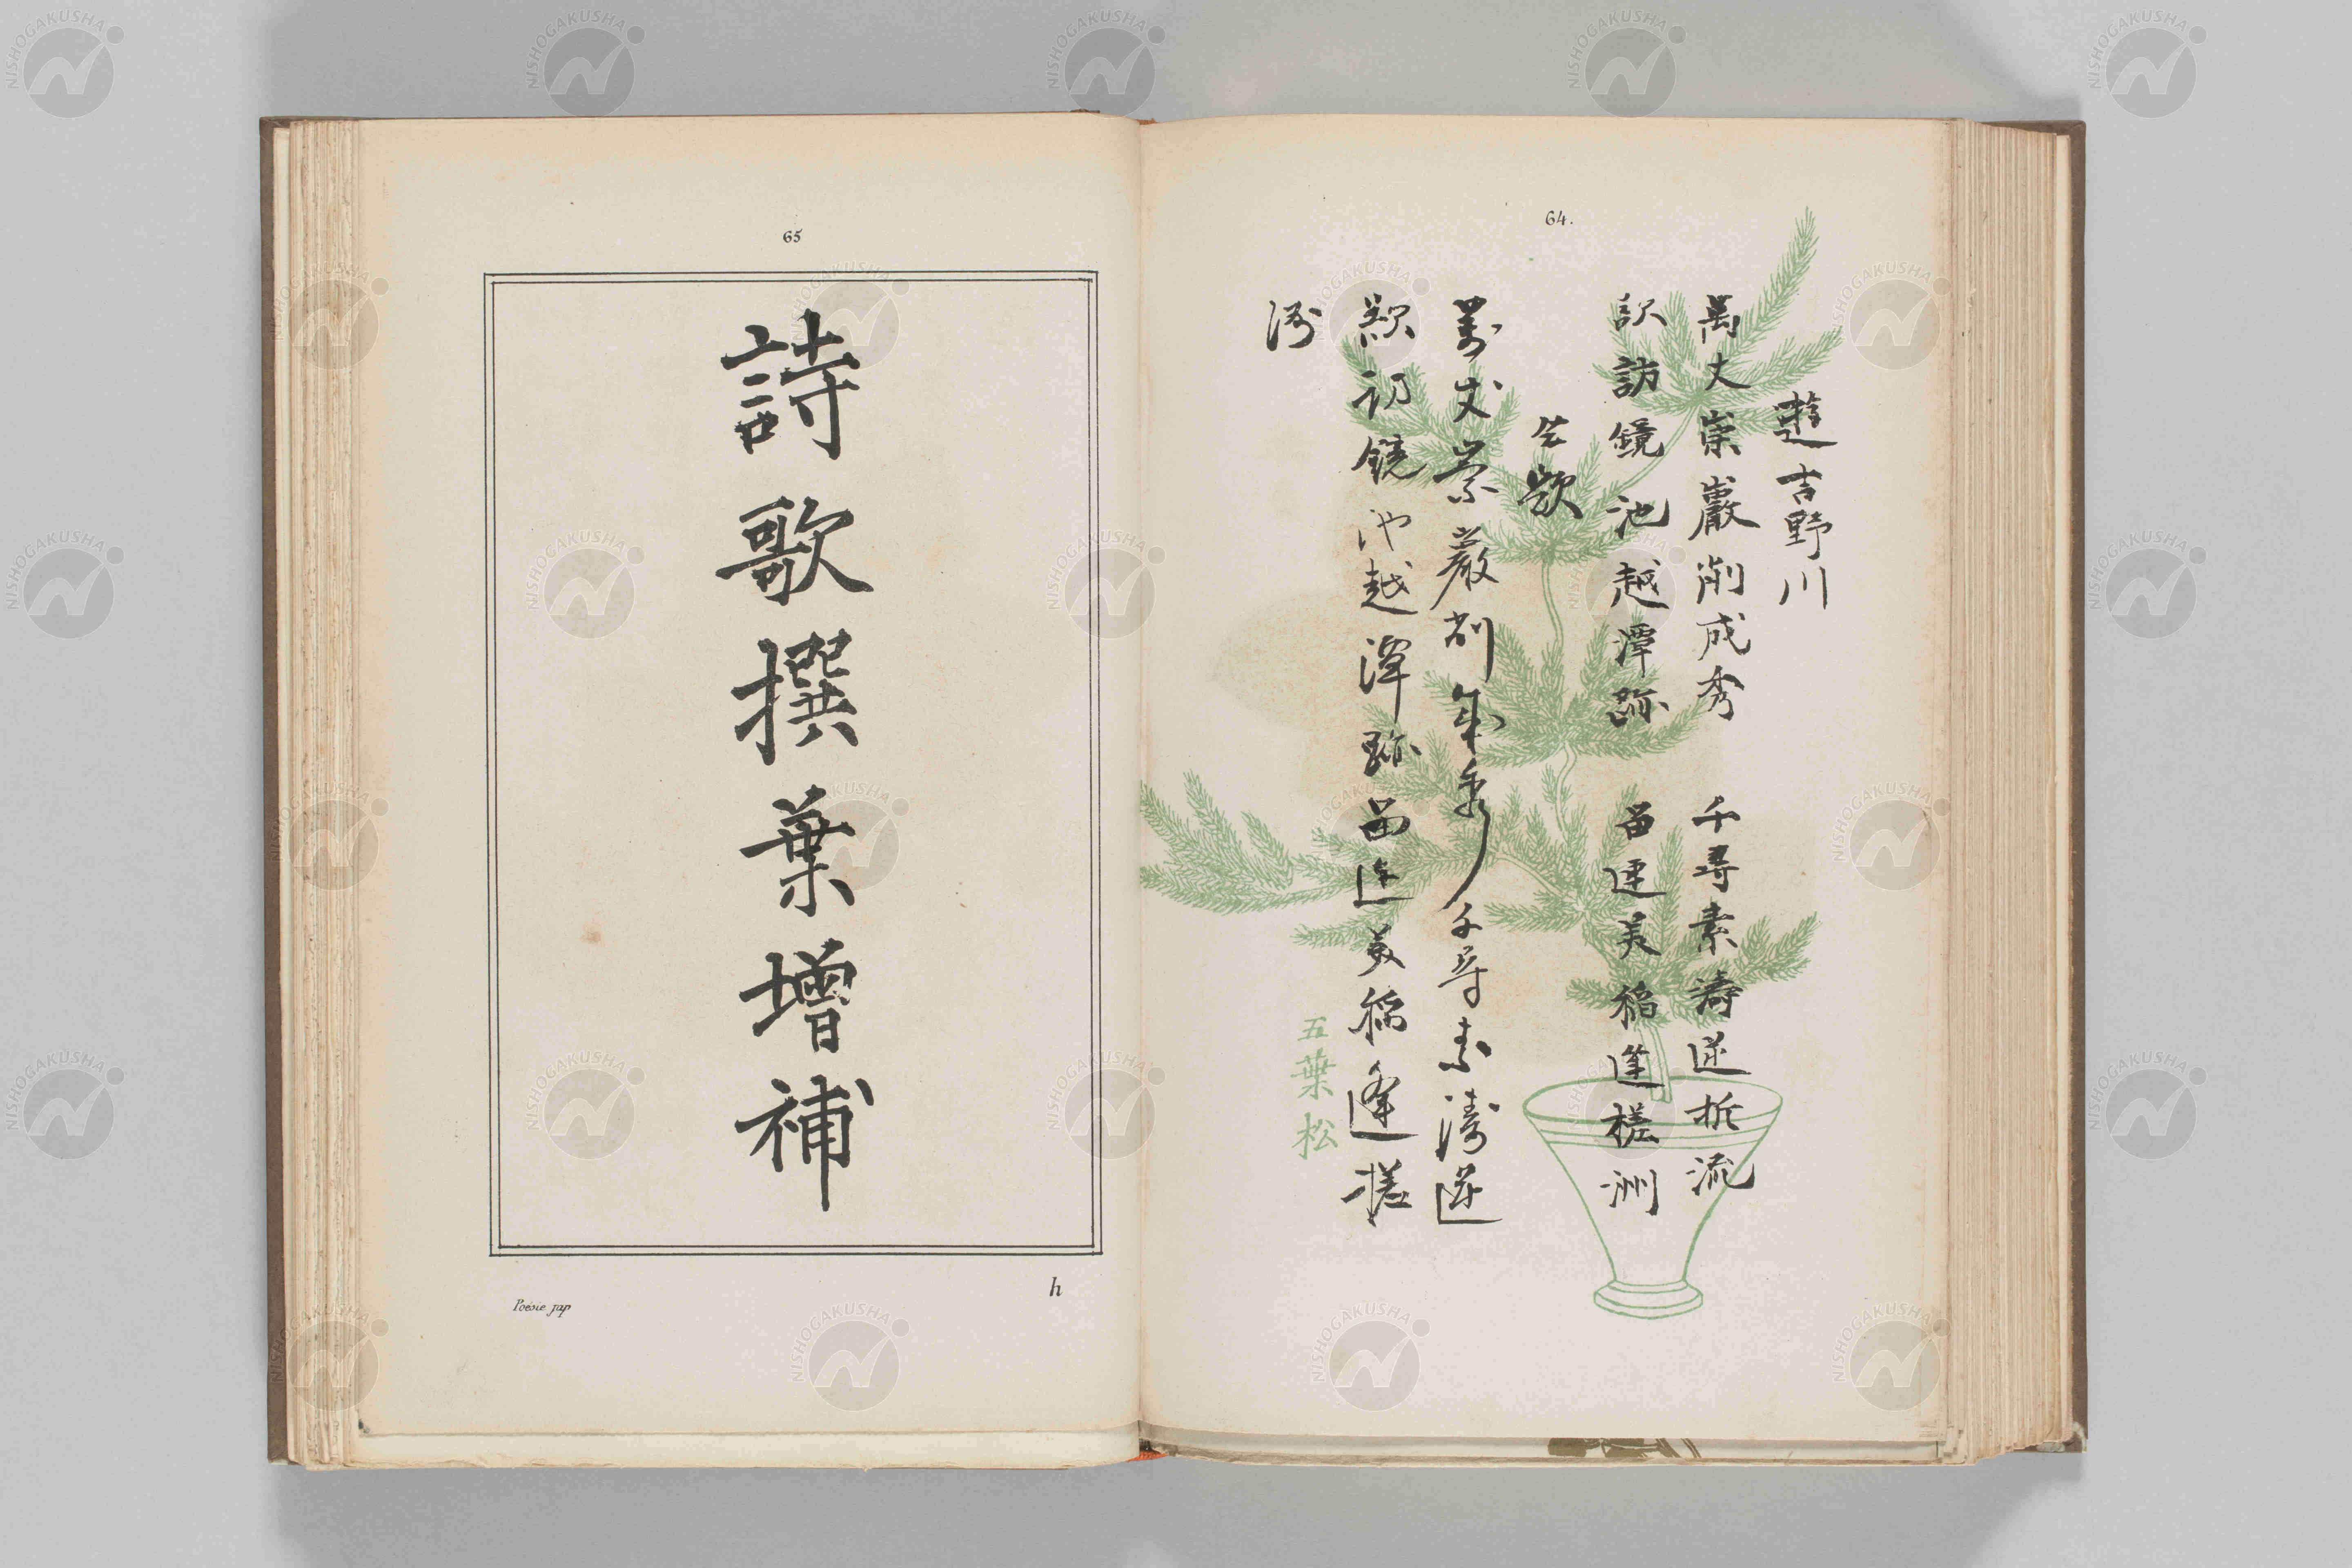 64.
遊吉野川
萬丈崇巖削成秀 千尋素濤逆折流
欲訪鏡池越潭跡 留連美稲逢槎洲
萬丈崇巖削成秀千尋素濤逆
欲訪鏡池越潭跡留連美稲逢槎
洲
五葉松
65
詩歌撰葉增補
Poésie jap
h
NISHOGAKUSHA